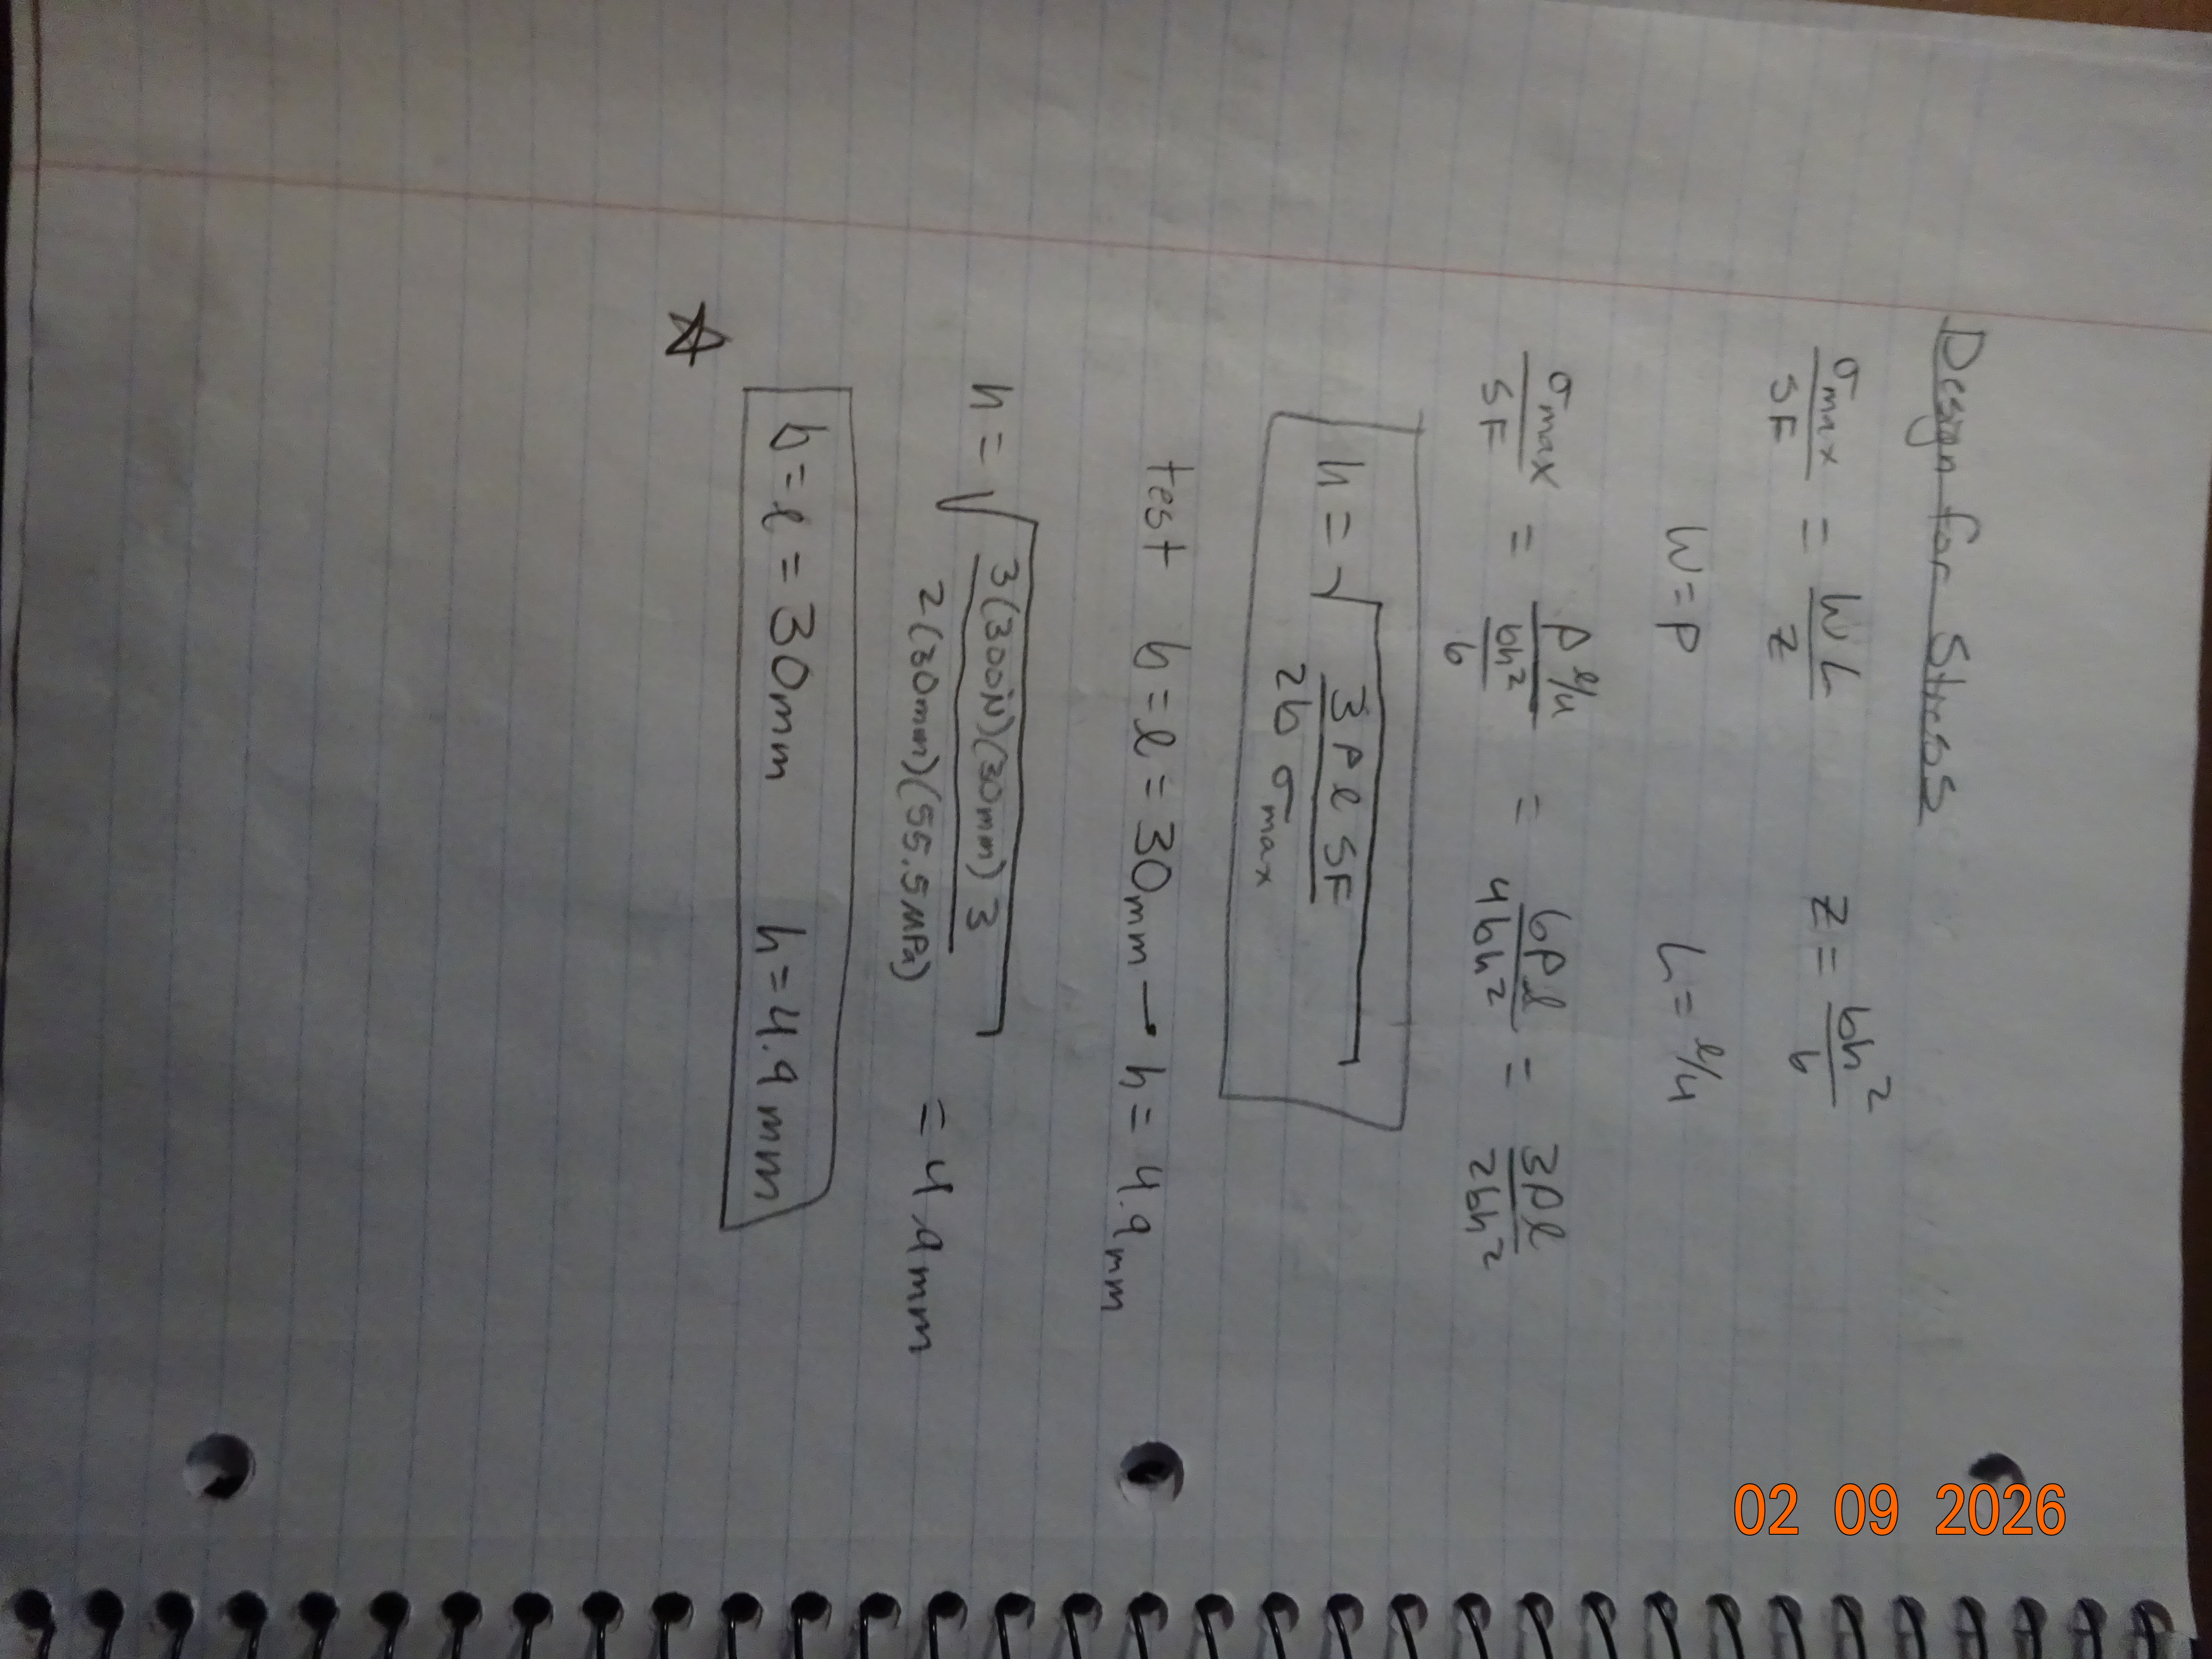 Design for Stress
σmax/SF = WL/Z Z = bh²/6
W = P L = l/4
σmax/SF = P l/4 / bh²/6 = 6Pl/4bh² = 3Pl/2bh²
h = √ 3 P l SF / 2b σmax
test b = l = 30mm → h = 4.9mm
h = √ 3(300N)(30mm) 3 / 2(30mm)(55.5MPa) = 4.9mm
☆ b = l = 30mm h = 4.9mm
02 09 2026